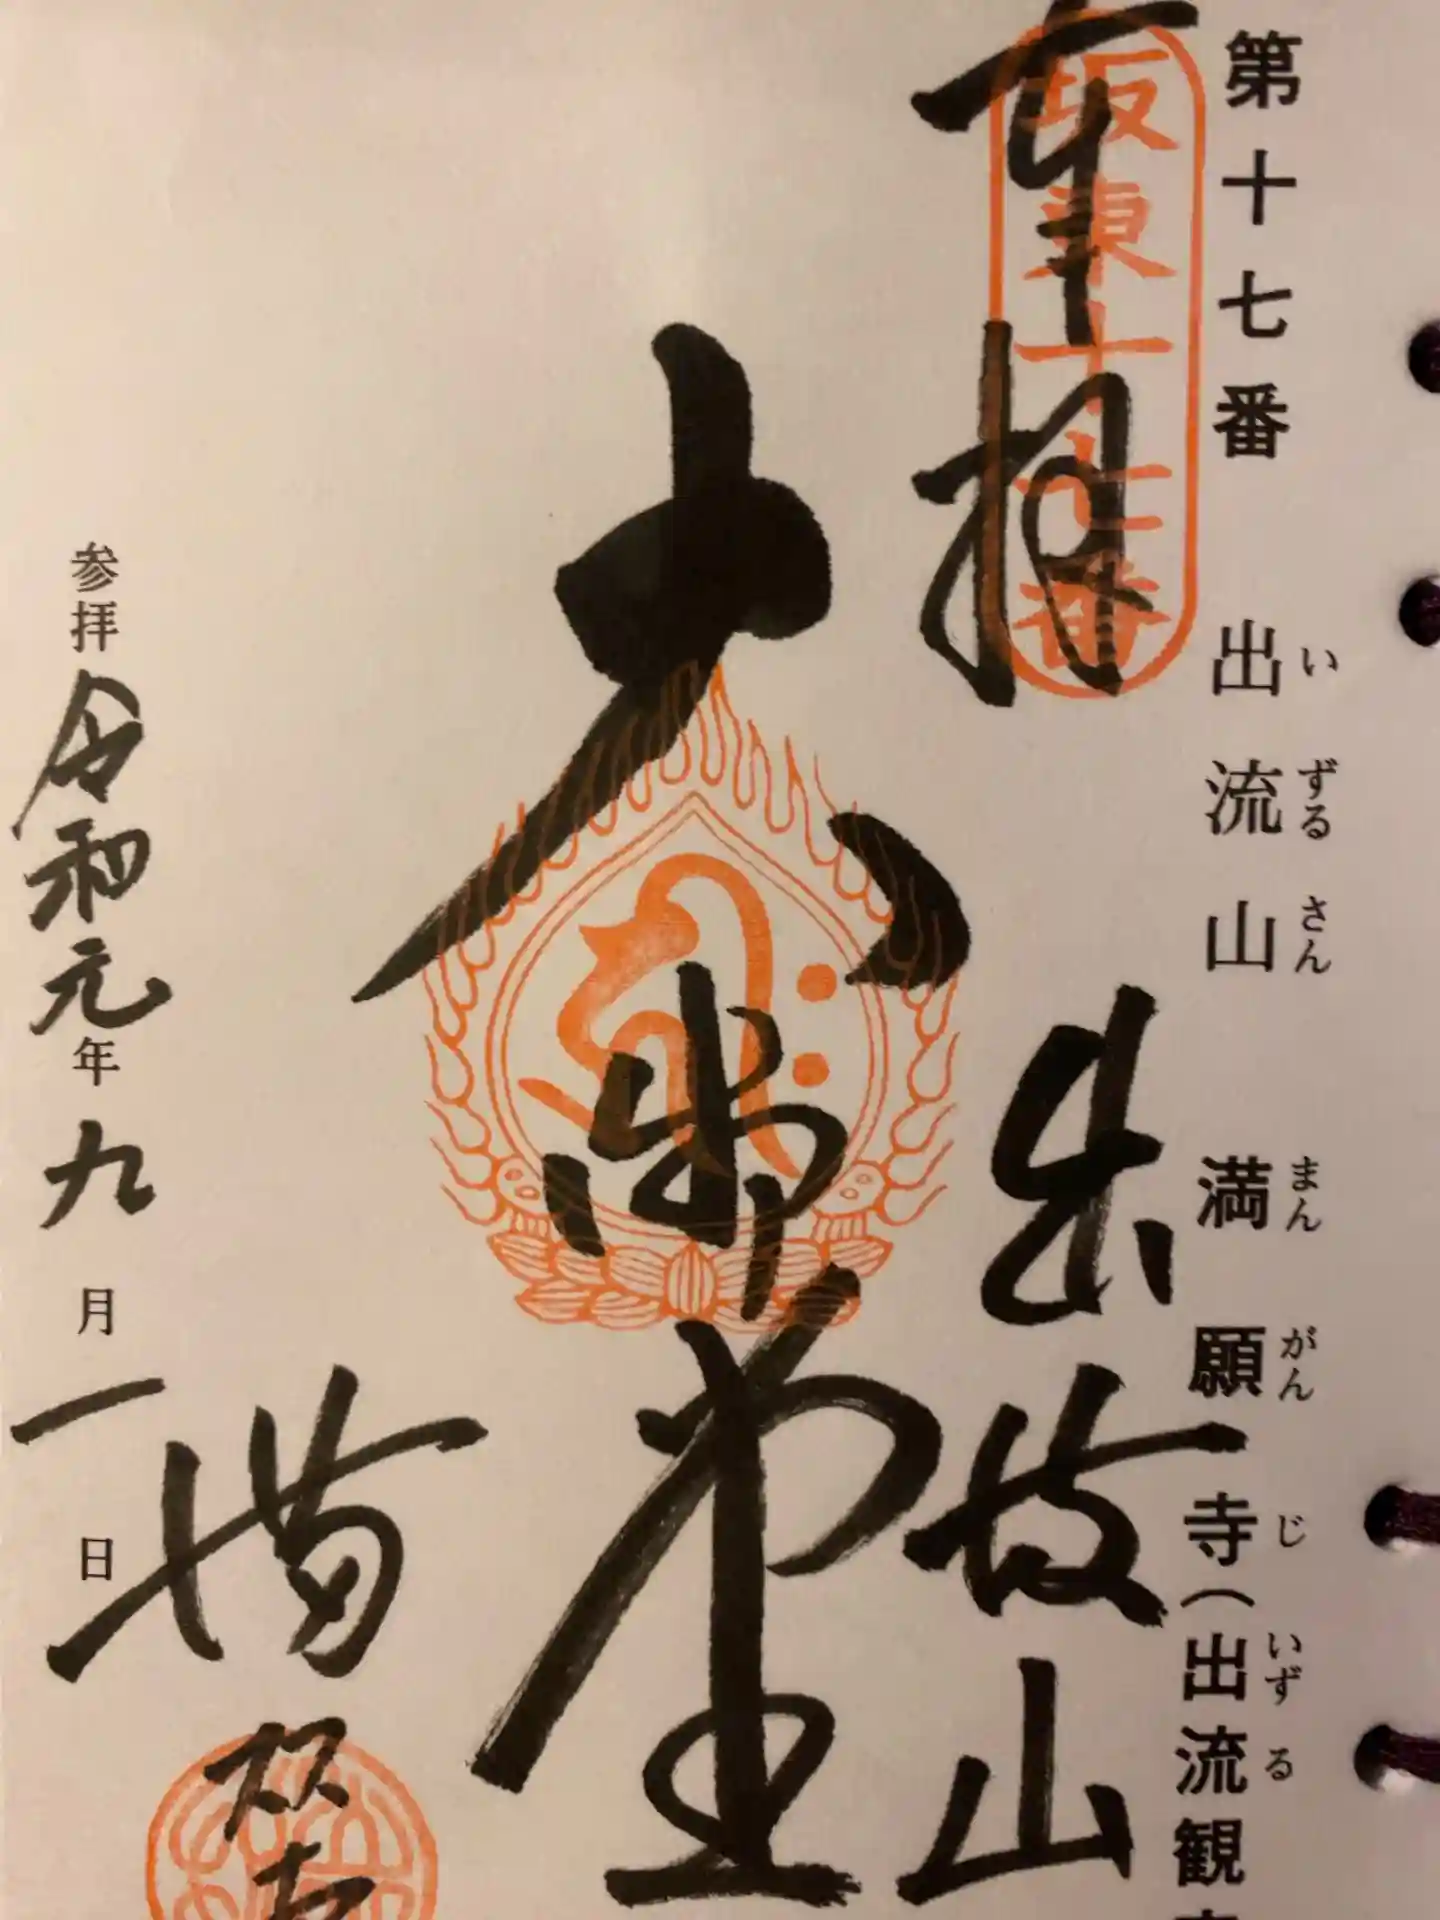 第十七番 出流山 満願寺(出流観
いずるさん まんがんじ いずる
坂東十七番
奉拝 出流山
大御堂
満願寺
参拝 令和元年九月一日